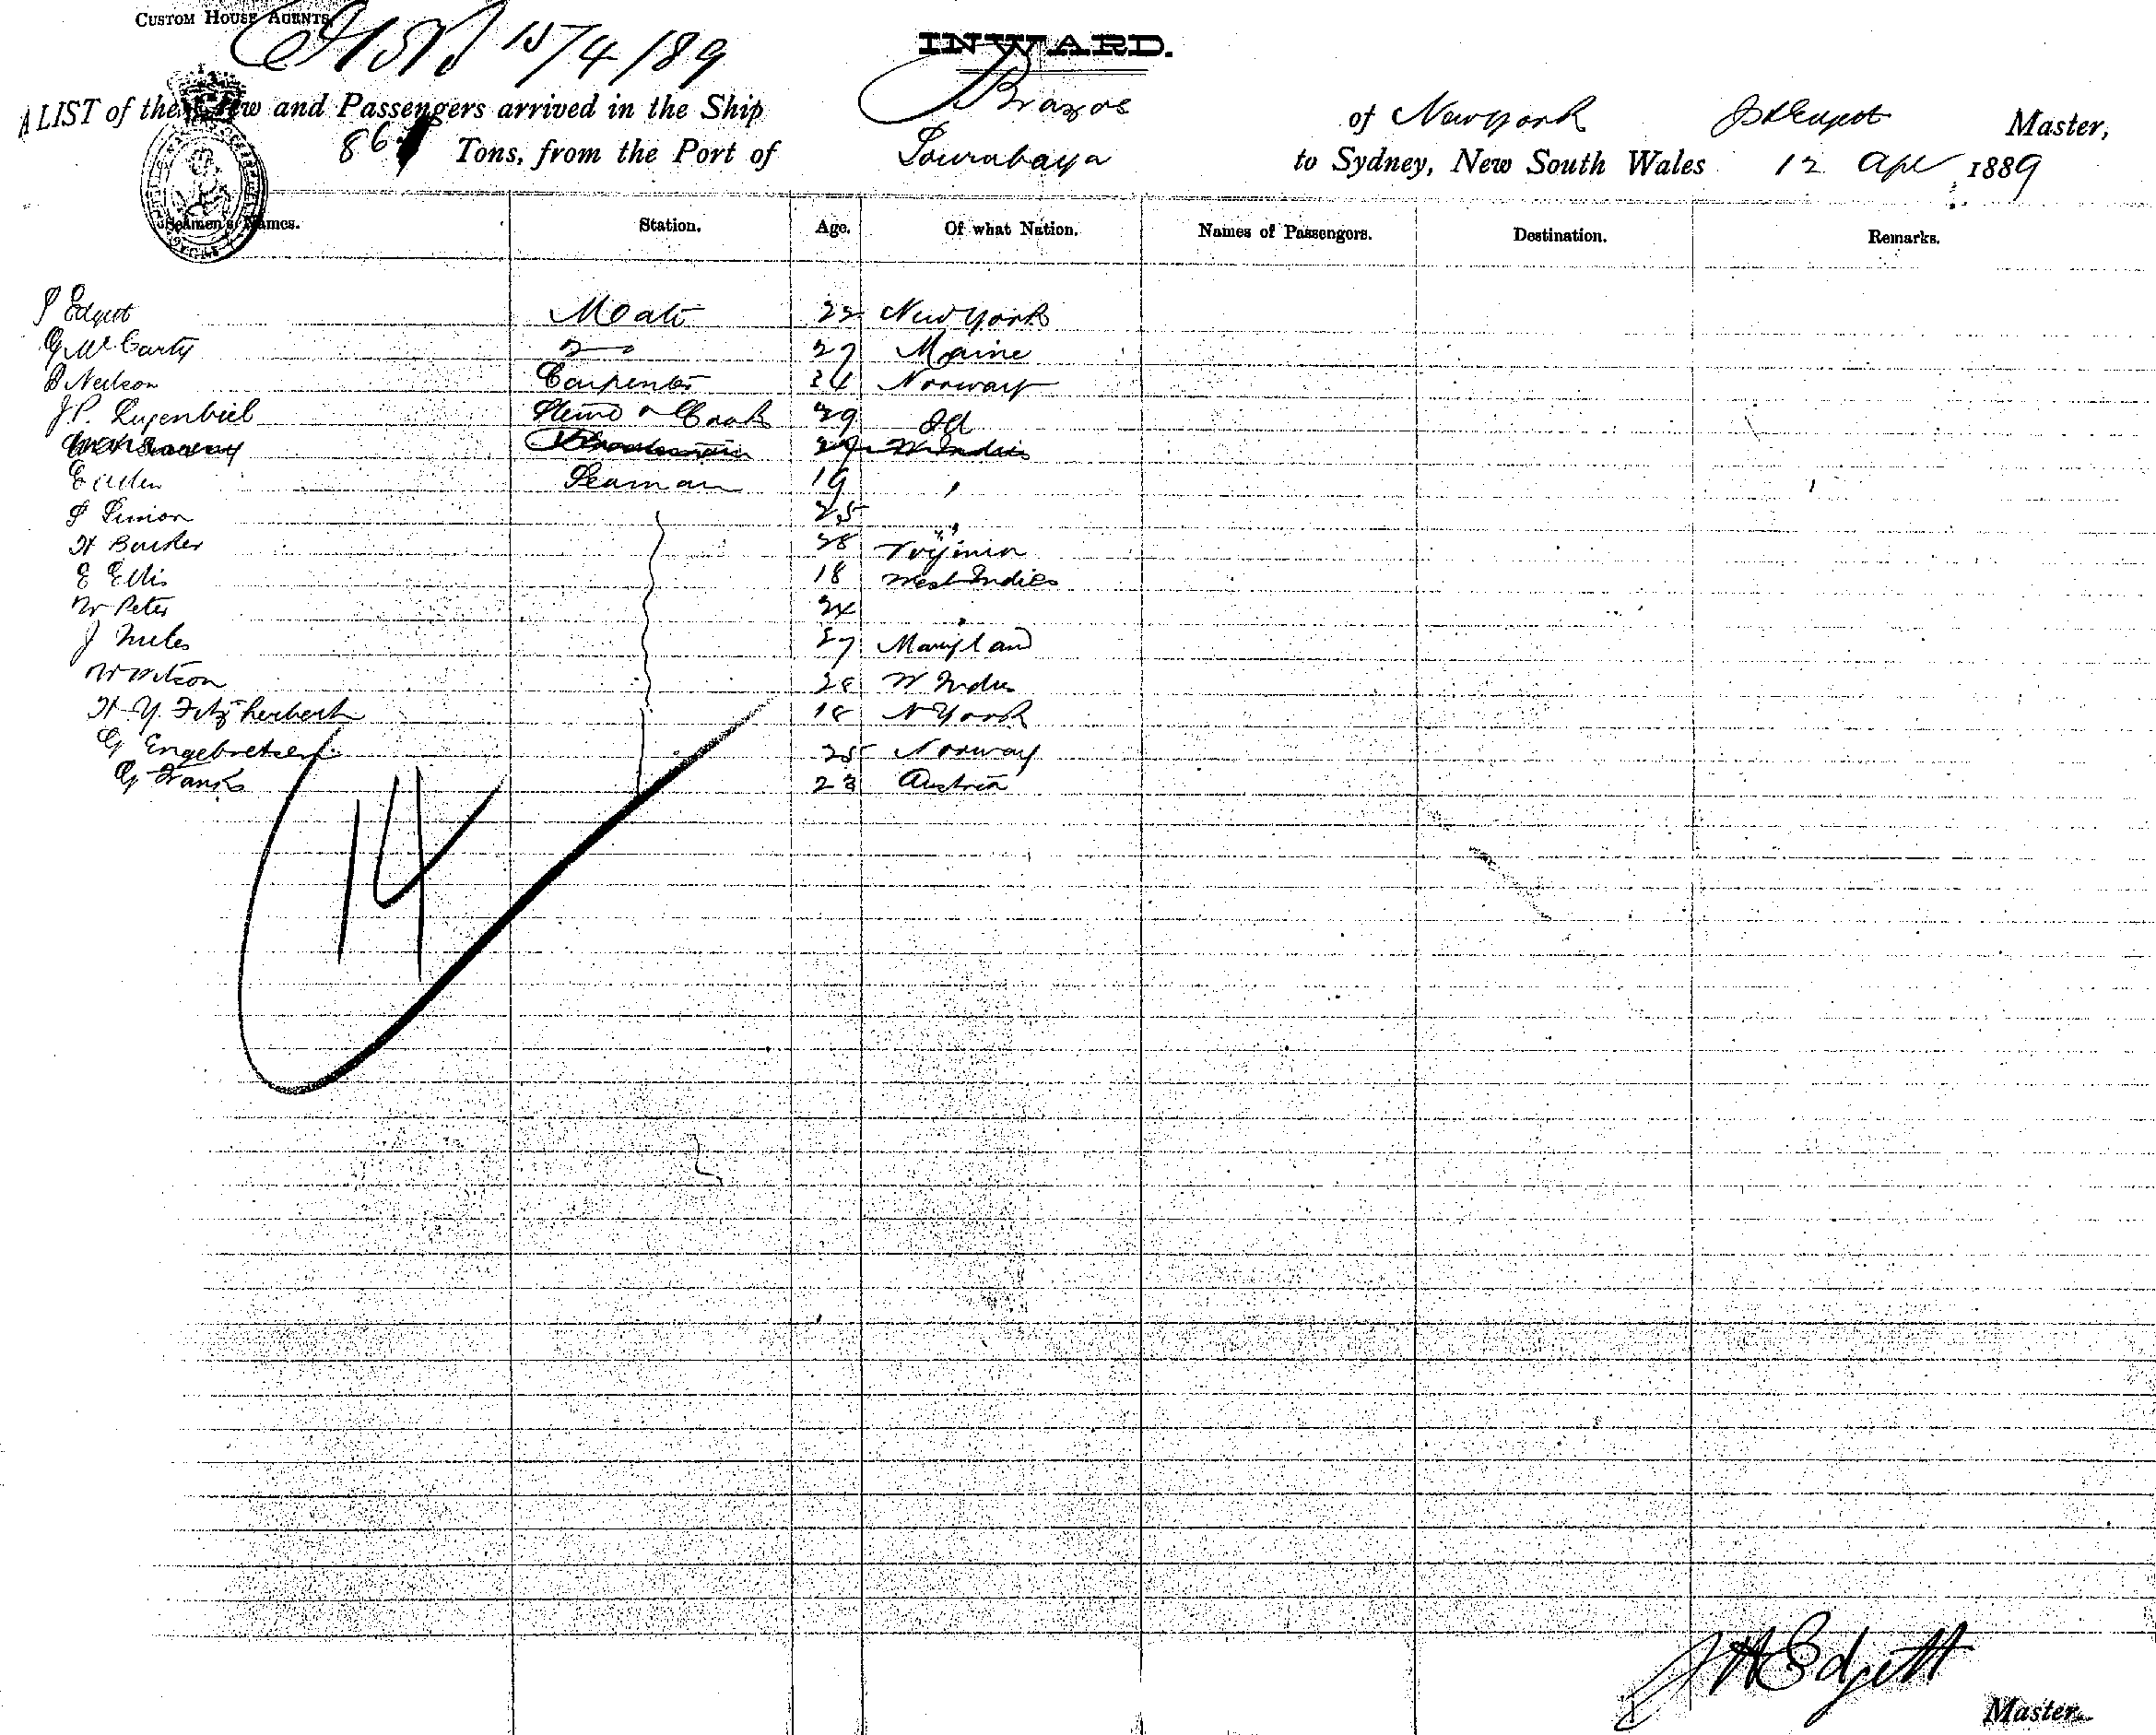 CUSTOM HOUSE AGENTS
15/4/89
INWARD.
A LIST of the Crew and Passengers arrived in the Ship Brazos of New York J H Edgett Master,
86 Tons, from the Port of Sourabaya to Sydney, New South Wales 12 Apl 1889
Seamen's Names. Station. Age. Of what Nation. Names of Passengers. Destination. Remarks.
Edgett Mate 22 New York
G McCarty 2 27 Maine
Neilson Carpenter 24 Norway
J P. Lugenbiel Stew'd & Cook 29
W Indies
E Allen Seaman 19 "
S Simon 25 "
H Barker 28 Virginia
E Ellis 18 West Indies
W Peter 24 "
J Miles 27 Maryland
W Wilson 28 W Indies
H. Y. Fitzherbert 18 N York
G Engebretsen 25 Norway
G Franks 23 Austria
14
J H Edgett
Master.